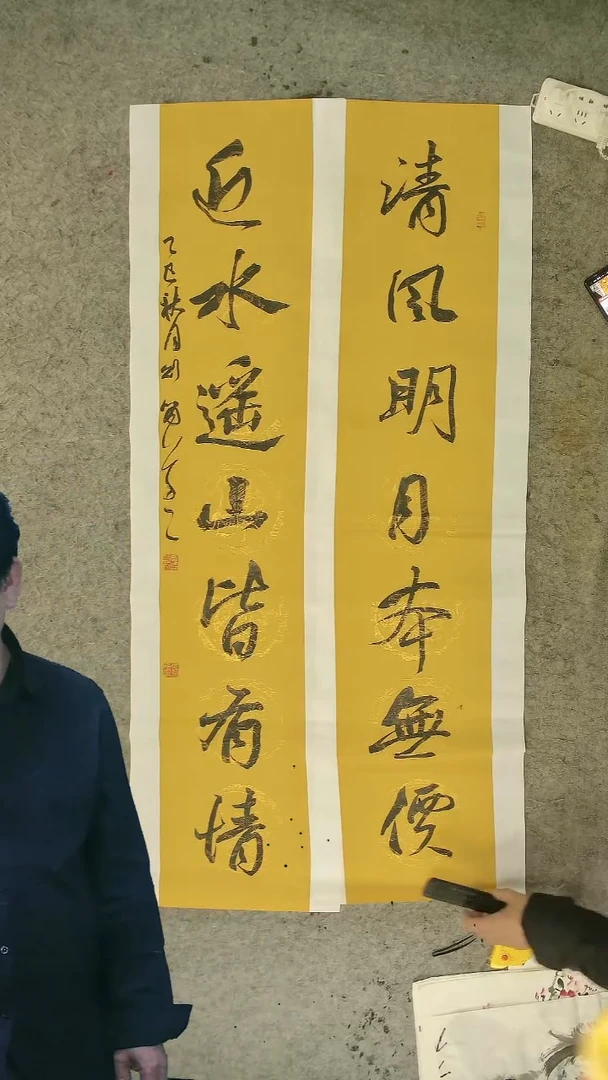 清風明月本無價
近水遥山皆有情
乙巳秋月